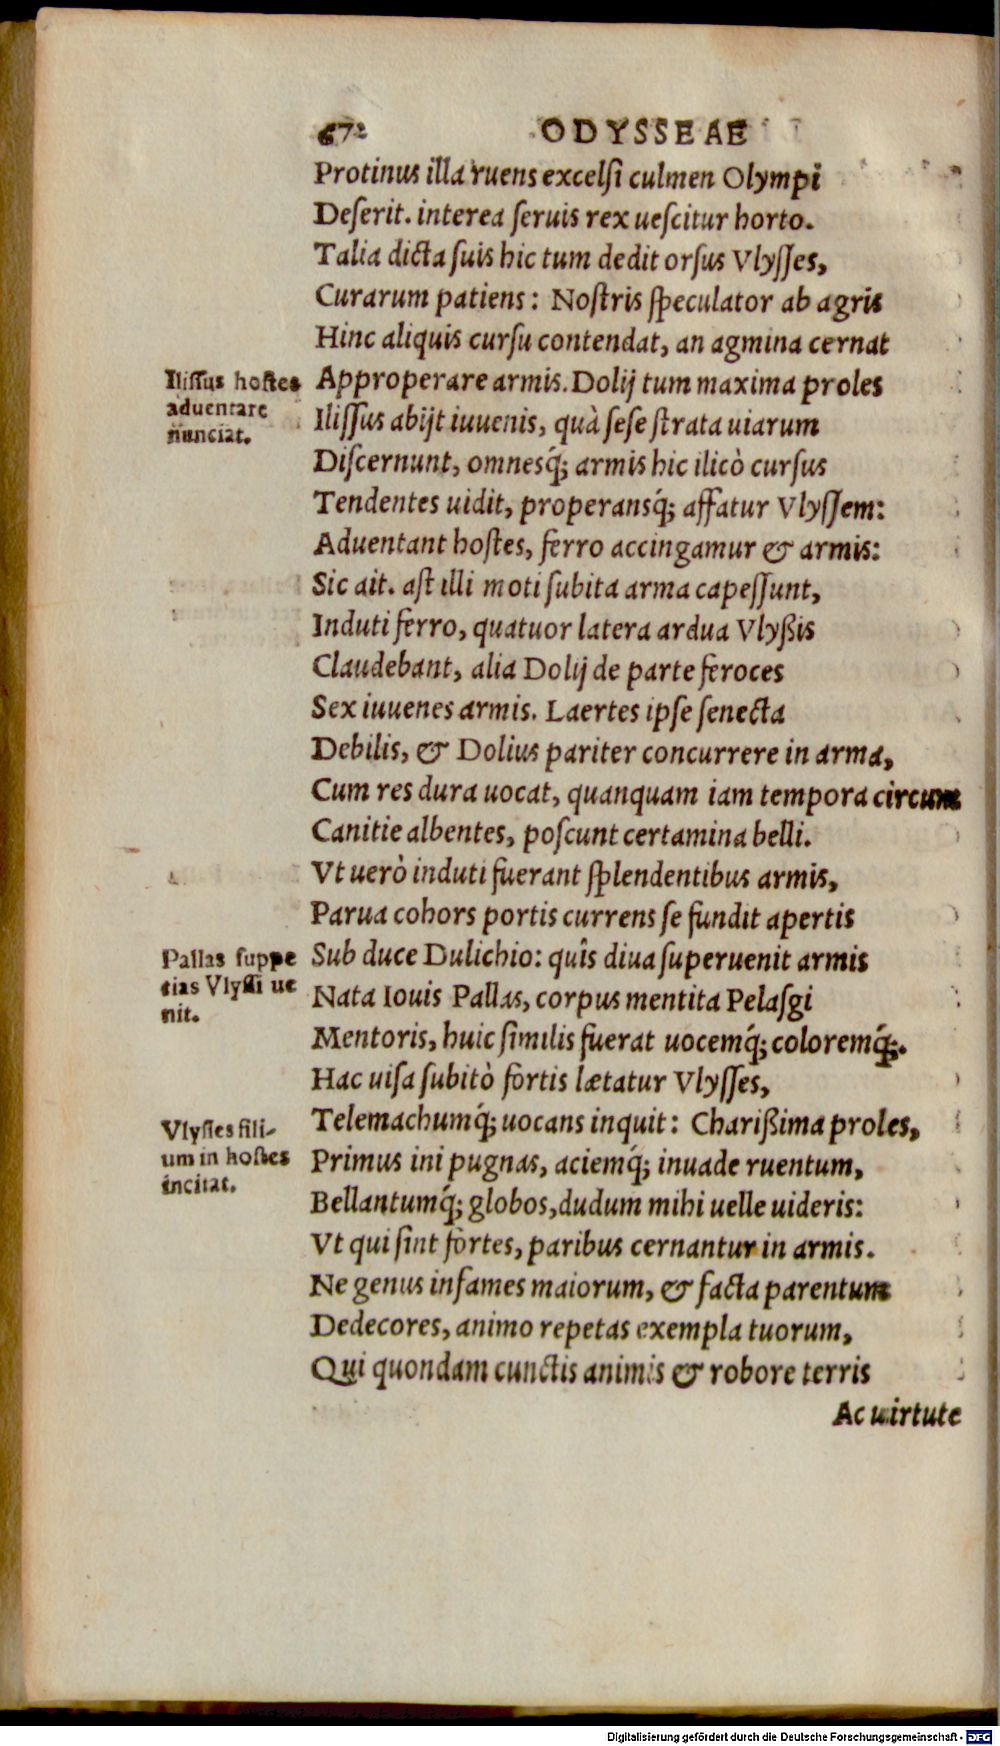 672 ODYSSEAE
Protinus illa ruens excelſi culmen Olympi
Deſerit. interea ſeruis rex ueſcitur horto.
Talia dicta ſuis hic tum dedit orſus Vlyſſes,
Curarum patiens: Noſtris ſpeculator ab agris
Hinc aliquis curſu contendat, an agmina cernat
Iliſſus hoſtes
aduentare
nunciat.
Approperare armis. Dolij tum maxima proles
Iliſſus abijt iuuenis, quà ſeſe ſtrata uiarum
Diſcernunt, omnesq́; armis hic ilicò curſus
Tendentes uidit, properansq́; affatur Vlyſſem:
Aduentant hoſtes, ferro accingamur & armis:
Sic ait. aſt illi moti ſubita arma capeſſunt,
Induti ferro, quatuor latera ardua Vlyßis
Claudebant, alia Dolij de parte feroces
Sex iuuenes armis. Laertes ipſe ſenecta
Debilis, & Dolius pariter concurrere in arma,
Cum res dura uocat, quanquam iam tempora circum
Canitie albentes, poſcunt certamina belli.
Vt uerò induti fuerant ſplendentibus armis,
Parua cohors portis currens ſe fundit apertis
Pallas ſuppe
tias Vlyſſi ue
nit.
Sub duce Dulichio: quîs diua ſuperuenit armis
Nata Iouis Pallas, corpus mentita Pelaſgi
Mentoris, huic ſimilis fuerat uocemq́; coloremq́;.
Hac uiſa ſubitò fortis lætatur Vlyſſes,
Vlyſſes fili-
um in hoſtes
incitat.
Telemachumq́; uocans inquit: Charißima proles,
Primus ini pugnas, aciemq́; inuade ruentum,
Bellantumq́; globos, dudum mihi uelle uideris:
Vt qui ſint fortes, paribus cernantur in armis.
Ne genus infames maiorum, & facta parentum
Dedecores, animo repetas exempla tuorum,
Qui quondam cunctis animis & robore terris
Ac uirtute
Digitalisierung gefördert durch die Deutsche Forschungsgemeinschaft - DFG